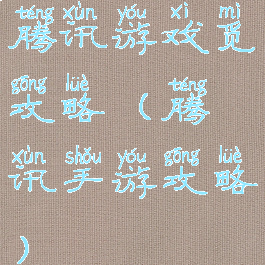 téng xùn yóu xì mì
腾讯游戏觅
gōng lüè téng
攻略（腾
xùn shǒu yóu gōng lüè
讯手游攻略
）